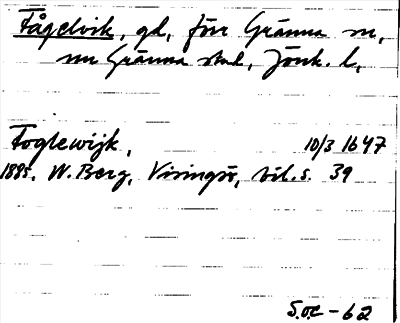 Fågelvik, gd, förr Gränna sn,
nu Gränna stad, Jönk. l,
Foglewijk, 10/3 1647
1885. W. Berg, Visingsö, bil. s. 39
S.O.C - 62